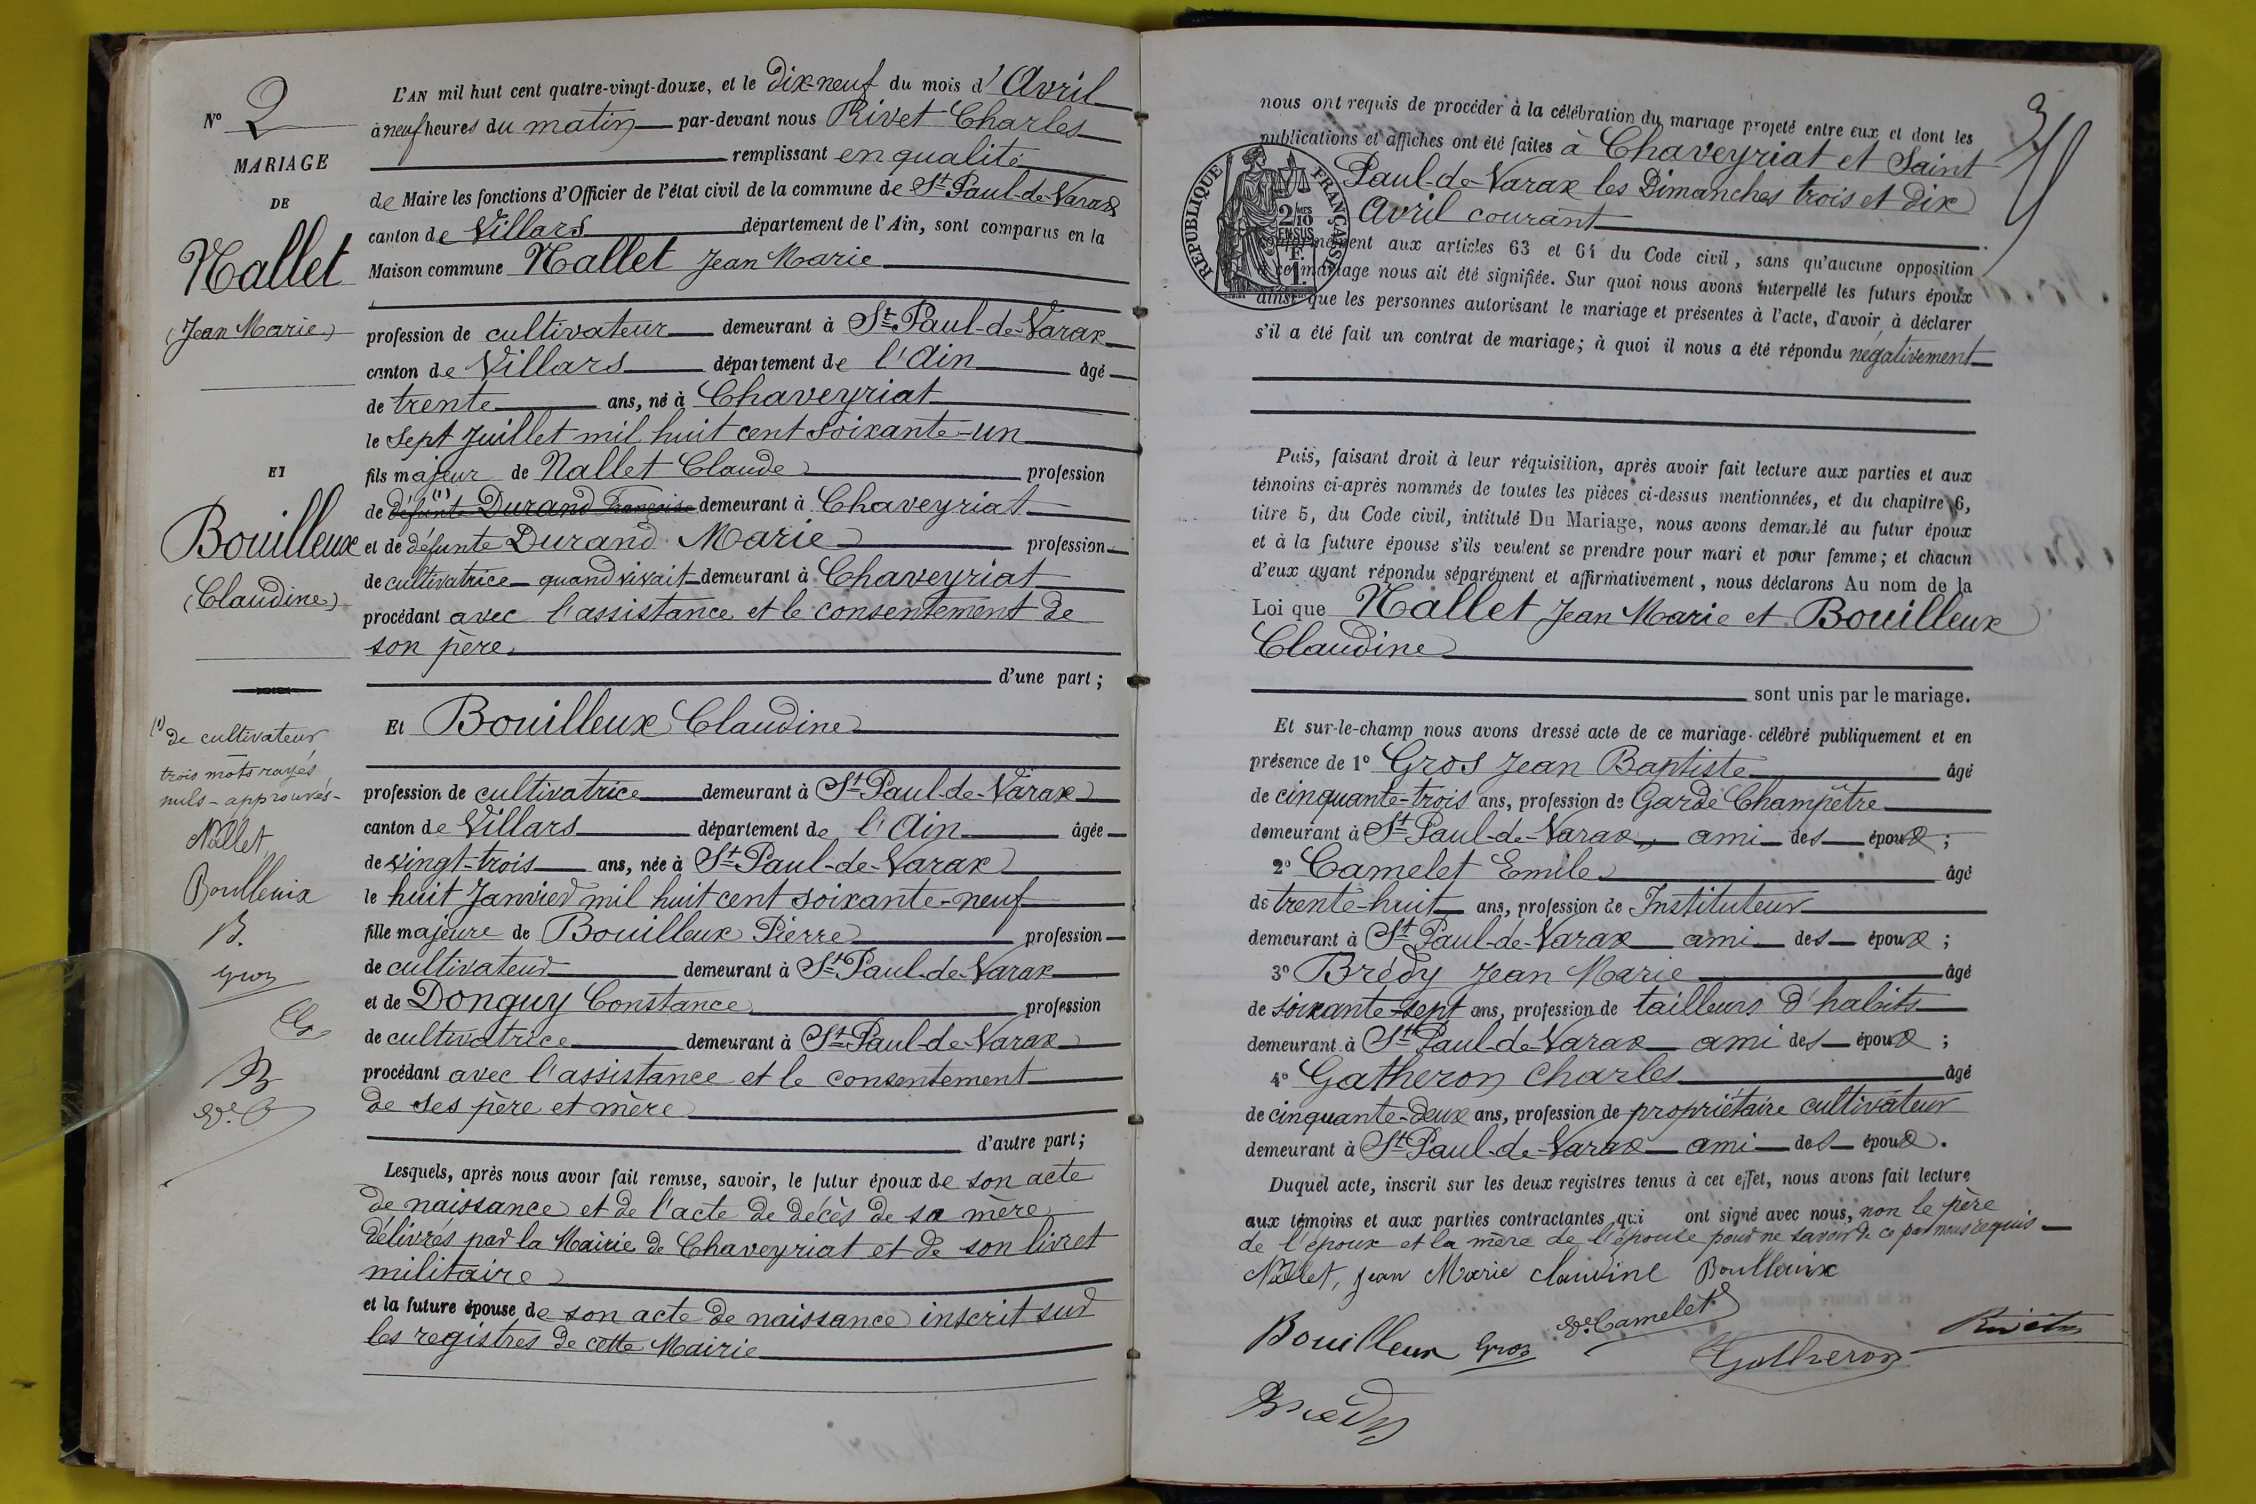 N° 2
MARIAGE
DE
Nallet
(Jean Marie)
ET
Bouilleux
(Claudine)
(1) de cultivateur
trois mots rayés
nuls - approuvés -
Nallet
Boulleuix
B.
Gros
B
L'AN mil huit cent quatre-vingt-douze, et le dix-neuf du mois d'Avril
à neuf heures du matin par-devant nous Rivet Charles
remplissant en qualité
de Maire les fonctions d'Officier de l'état civil de la commune de St-Paul-de-Varax
canton de Villars département de l'Ain, sont comparus en la
Maison commune Nallet Jean Marie
profession de cultivateur demeurant à St-Paul-de-Varax
canton de Villars département de l'Ain âgé
de trente ans, né à Chaveyriat
le sept Juillet mil huit cent soixante-un
fils majeur de Nallet Claude profession
de (1) défunte Durand Françoise demeurant à Chaveyriat
et de défunte Durand Marie profession
de cultivatrice quand vivait demeurant à Chaveyriat
procédant avec l'assistance et le consentement de
son père
d'une part;
Et Bouilleux Claudine
profession de cultivatrice demeurant à St-Paul-de-Varax
canton de Villars département de l'Ain âgée
de vingt-trois ans, née à St-Paul-de-Varax
le huit Janvier mil huit cent soixante-neuf
fille majeure de Bouilleux Pierre profession
de cultivateur demeurant à St-Paul-de-Varax
et de Donguy Constance profession
de cultivatrice demeurant à St-Paul-de-Varax
procédant avec l'assistance et le consentement
de ses père et mère
d'autre part;
Lesquels, après nous avoir fait remise, savoir, le futur époux de son acte
de naissance et de l'acte de décès de sa mère
délivrés par la Mairie de Chaveyriat et de son livret
militaire
et la future épouse de son acte de naissance inscrit sur
les registres de cette Mairie
3
nous ont requis de procéder à la célébration du mariage projeté entre eux et dont les
publications et affiches ont été faites à Chaveyriat et Saint
Paul-de-Varax les Dimanches trois et dix
Avril courant
RÉPUBLIQUE FRANÇAISE
2/10 MES
EN SUS
1 F.
conformément aux articles 63 et 64 du Code civil, sans qu'aucune opposition
à ce mariage nous ait été signifiée. Sur quoi nous avons interpellé les futurs époux
ainsi que les personnes autorisant le mariage et présentes à l'acte, d'avoir à déclarer
s'il a été fait un contrat de mariage; à quoi il nous a été répondu négativement
Puis, faisant droit à leur réquisition, après avoir fait lecture aux parties et aux
témoins ci-après nommés de toutes les pièces ci-dessus mentionnées, et du chapitre 6,
titre 5, du Code civil, intitulé Du Mariage, nous avons demandé au futur époux
et à la future épouse s'ils veulent se prendre pour mari et pour femme; et chacun
d'eux ayant répondu séparément et affirmativement, nous déclarons Au nom de la
Loi que Nallet Jean Marie et Bouilleux
Claudine
sont unis par le mariage.
Et sur-le-champ nous avons dressé acte de ce mariage célébré publiquement et en
présence de 1° Gros Jean Baptiste âgé
de cinquante-trois ans, profession de Garde Champêtre
demeurant à St-Paul-de-Varax, ami des époux;
2° Camelet Emile âgé
de trente-huit ans, profession de Instituteur
demeurant à St Paul-de-Varax ami des époux;
3° Brédy Jean Marie âgé
de soixante-sept ans, profession de tailleurs d'habits
demeurant à St Paul-de-Varax ami des époux;
4° Gatheron Charles âgé
de cinquante-deux ans, profession de propriétaire cultivateur
demeurant à St Paul-de-Varax ami des époux.
Duquel acte, inscrit sur les deux registres tenus à cet effet, nous avons fait lecture
aux témoins et aux parties contractantes qui ont signé avec nous, non le père
de l'époux et la mère de l'épouse pour ne savoir de ce par nous requis
Nallet, Jean Marie Claudine Boulleuix
Bouilleux Gros Camelet Gatheron Rivet
Brédy